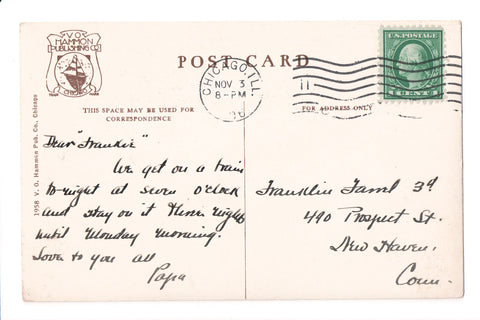 V.O.
HAMMON
PUBLISHING CO
CHICAGO
TRADE MARK
POST CARD
U.S. POSTAGE
1 CENT 1
CHICAGO, ILL.
NOV 3
8-PM
11
THIS SPACE MAY BE USED FOR
CORRESPONDENCE
FOR ADDRESS ONLY
1958 V. O. Hammon Pub. Co., Chicago
Dear "Frankie"
We get on a train
to-night at seven o'clock
and stay on it three nights
until Monday morning.
Love to you all
Papa
Franklin Farrel 3d
490 Prospect St.
New Haven.
Conn.